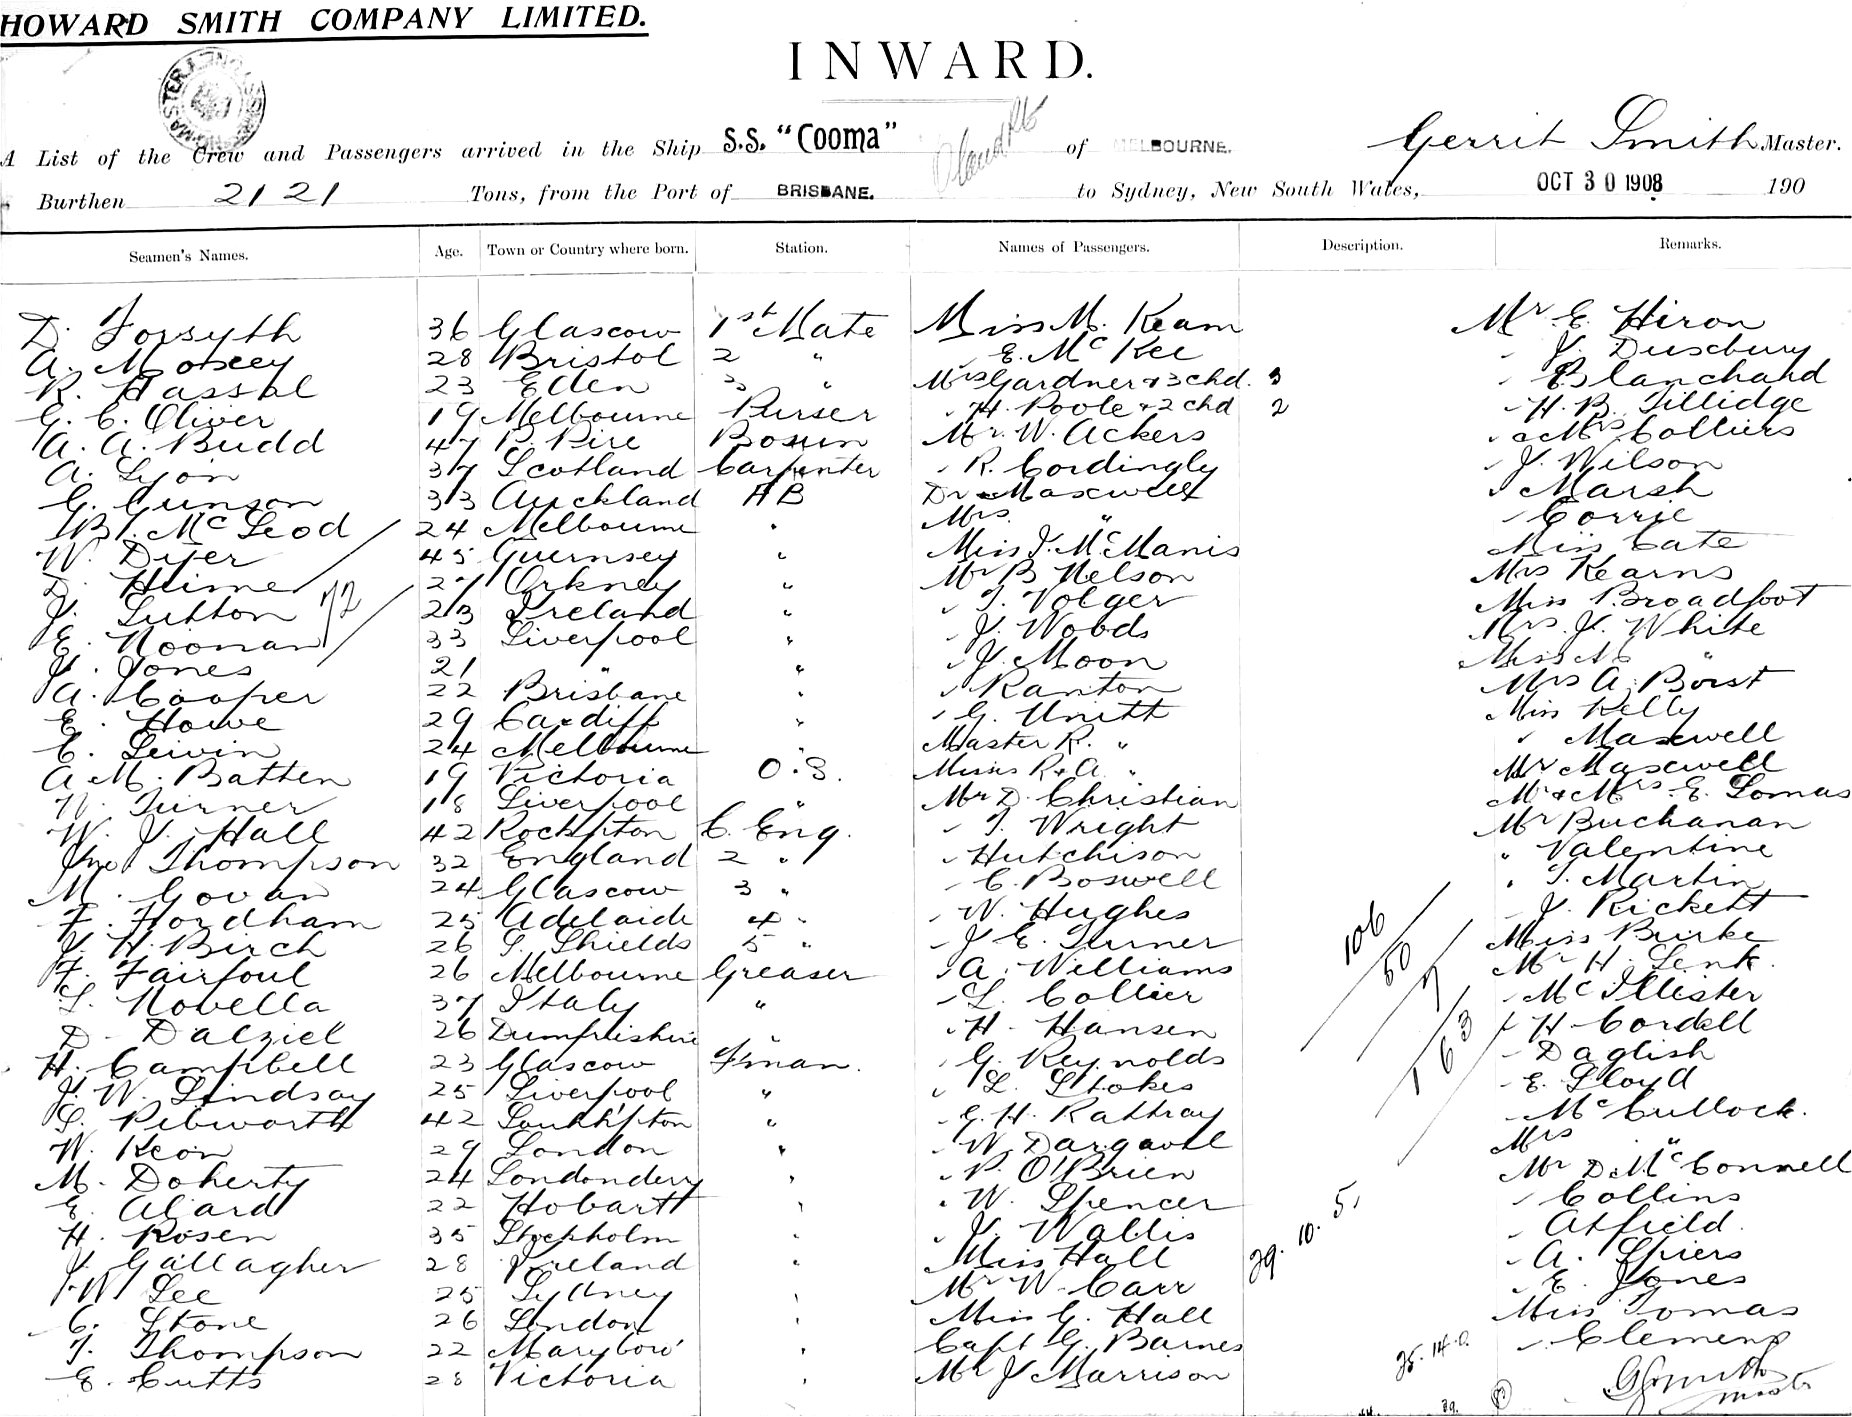 HOWARD SMITH COMPANY LIMITED.
INWARD.
A List of the Crew and Passengers arrived in the Ship S.S. "Cooma" of MELBOURNE. Gerrit Smith Master.
Burthen 2121 Tons, from the Port of BRISBANE. to Sydney, New South Wales, OCT 30 1908 190
Seamen's Names. Age. Town or Country where born. Station. Names of Passengers. Description. Remarks.
D. Forsyth 36 Glascow 1st Mate Miss M. Keam Mr E. Hiron
A. Moxey 28 Bristol 2 " " E. McKee " J. Duxbury
R. Hassal 23 Eden 3 " Mrs Gardner & 3 chd. 3 " Blanchard
G. C. Oliver 19 Melbourne Purser " H. Poole & 2 chd 2 " H. B. Tillidge
A. A. Budd 47 P. Pire Bosun Mr. W. Ackers " & Mrs Colliers
A. Lyon 37 Scotland Carpenter " R. Cordingly " J. Wilson
G. Gunson 33 Auckland AB Dr Maxwell " Marsh
McLeod 24 Melbourne " Mrs. " " Corrie
W. Dyer 45 Guernsey " Miss J. McManis Miss Cate
D. Hume 27 Orkney " Mr B Nelson Mrs Kearns
J. Sutton 23 Ireland " " T. Volger Miss Broadfoot
E. Noonan 72 33 Liverpool " " J. Woods Mrs. J. White
J. Jones 21 " " " J. Moon Miss M "
A. Cooper 22 Brisbane " " Ranton Mrs A. Borst
E. Howe 29 Cardiff " " G. Unitt Miss Kelly
C. Lewin 24 Melbourne " Master R. " " Maxwell
A. M. Batten 19 Victoria O.S. Misses R & A. " Mr Maxwell
W. Turner 18 Liverpool " Mr D. Christian Mr & Mrs E. Lomas
W. J. Hall 42 Rockh'pton C. Eng. " T. Wright Mr Buchanan
Jno Thompson 32 England 2 " " Hutchison " Valentine
M. Govan 24 Glascow 3 " " C. Boswell " T. Martin
F. Fordham 25 Adelaide 4 " " W. Hughes " J. Rickett
J. H. Birch 26 S. Shields 5 " " J. E. Turner Miss Burke
F. Fairfoul 26 Melbourne Greaser " A. Williams 106 50 7 Mr H. Lenk.
L. Novella 37 Italy " " L. Collier " McIllister
D. Dalziel 26 Dumfrieshire " " H. Hansen 163 " H. Cordell
H. Campbell 23 Glascow F'man. " G. Reynolds " Daglish
J. W. Lindsay 25 Liverpool " " L. Stokes " E. Lloyd
L. Pebworth 42 Southh'pton " " G. H. Rattray " McCullock.
W. Keon 29 London " " W. Dargavel Mrs "
M. Doherty 24 Londonderry " " P. O'Brien Mr D. McConnell
E. Alard 22 Hobart " " W. Spencer " Collins
H. Rosen 35 Stockholm " " J. Wallis 29. 10. 5. " Atfield.
J. Gallagher 28 Ireland " Miss Hall " A. Spiers
W Lee 25 Sydney " Mr W. Carr " E. Jones
C. Stone 26 London " Miss G. Hall Miss Tomas
T. Thompson 22 Marybow' " Capt G. Barnes 25. 14. 0. " Clemens
E. Cutts 28 Victoria " Mr J Marrison G Smith
Master